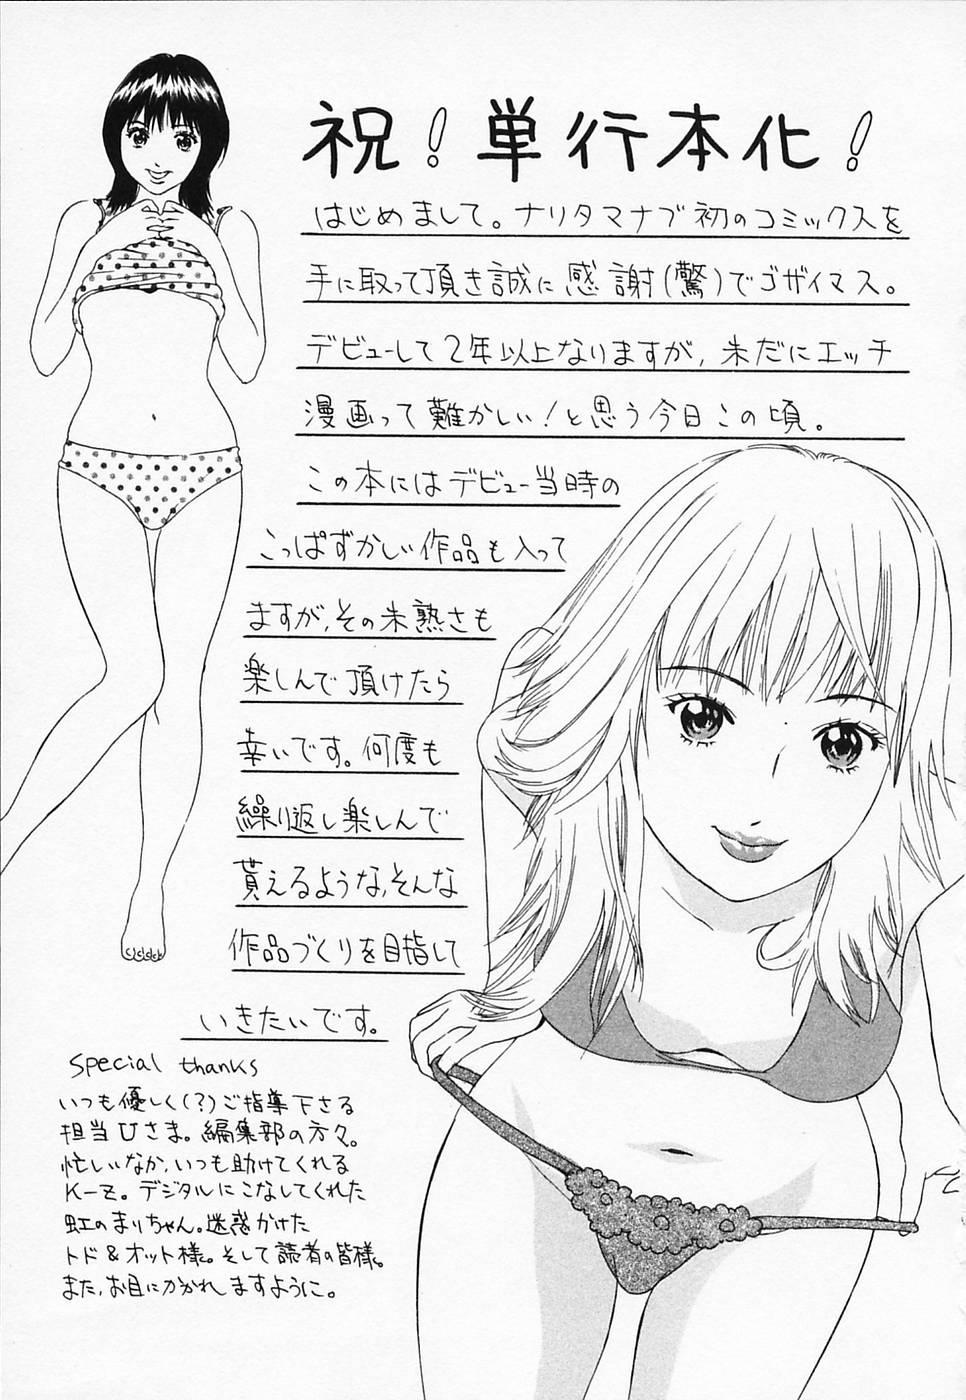 祝！単行本化！
はじめまして。ナリタマナブ初のコミックスを
手に取って頂き誠に感謝(驚)でゴザイマス。
デビューして2年以上なりますが、未だにエッチ
漫画って難かしい！と思う今日この頃。
この本にはデビュー当時の
こっぱずかしい作品も入って
ますが、その未熟さも
楽しんで頂けたら
幸いです。何度も
繰り返し楽しんで
貰えるような、そんな
作品づくりを目指して
いきたいです。
Special thanks
いつも優しく(？)ご指導下さる
担当Uさま。編集部の方々。
忙しいなか、いつも助けてくれる
K-Z。デジタルにこなしてくれた
虹のまりちゃん。迷惑かけた
トド&オット様。そして読者の皆様。
また、お目にかかれますように。